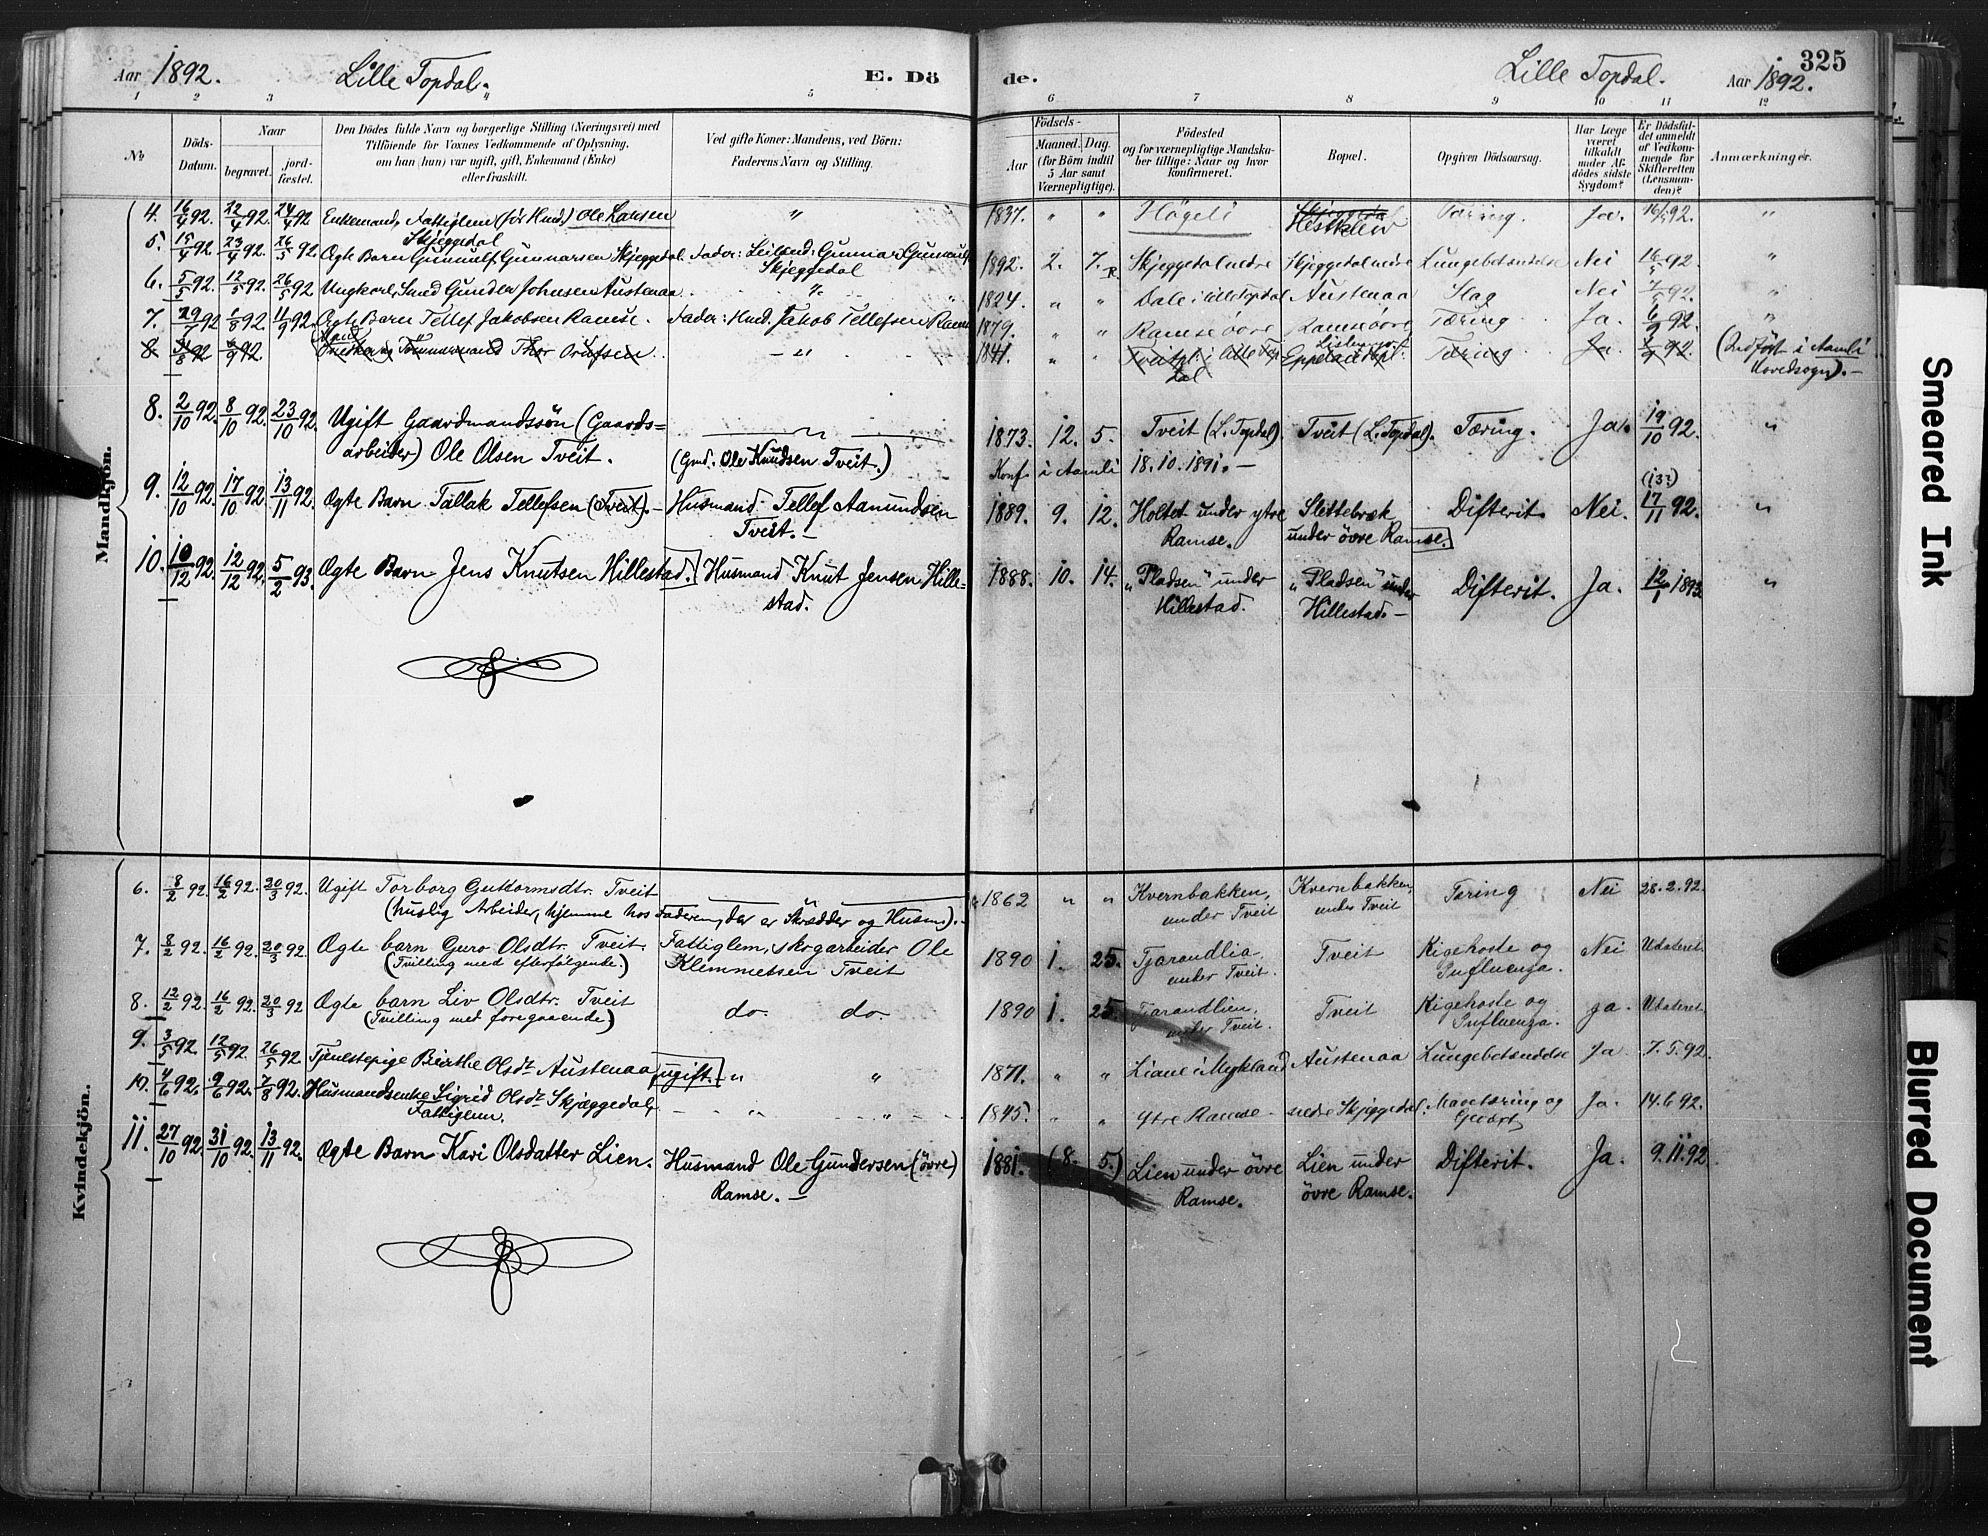 Aar 1892. Lille Topdal. E. Dö de. Lille Topdal. Aar 1892. 325
1 2 3 5 6 7 8 9 10 11 12
No
Döds-Datum.
Naar
begravet.
jord-fæstet.
Den Dödes fulde Navn og borgerlige Stilling (Næringsvei) med
Tilföiende for Voxnes Vedkommende af Oplysning,
om han (hun) var ugift, gift, Enkemand (Enke)
eller fraskilt.
Ved gifte Koner: Mandens, ved Börn:
Faderens Navn og Stilling.
Födsels-
Aar
Maaned. Dag.
(for Börn indtil
5 Aar samt
Værnepligtige).
Födested
og for værnepligtige Mandska-
ber tillige: Naar og hvor
konfirmeret.
Bopæl.
Opgiven Dödsaarsag.
Har Læge
været
tilkaldt
under Af-
dödes sidste
Sygdom?
Er Dödsfal-
det anmeldt
af Vedkom-
mende for
Skifteretten
(Lensman-
den)?
Anmærkninger.
Mandkjön.
4. 16/4 92. 22/4 92. 24/4 92 Enkemand, Fattiglem (för Husd.) Ole Larsen " 1837. " " Högeli Skjeggedal Tæring. Ja. 16/5 92. "
Skjeggedal Hestkleiv
5. 15/4 92. 23/4 92. 26/5 92. Ægte Barn Gunnulf Gunnarsen Skjeggedal. Fader: Leilænd: Gunnar Gunnulfs. 1892. 2. 7. Skjeggedal nedre Skjeggedal nedre Lungebetændelse Nei 16/5 92. "
Skjeggedal
6. 5/5 92. 12/5 92. 26/5 92 Ungkarl, Smed Gunder Johnsen Austenaa " 1824. " " Dale i Lille Topdal Austenaa Slag Nei 7/5 92. "
7. 29/7 92 1/8 92. 11/9 92. Ægte Barn Tellef Jakobsen Ramse. Fader: Husd. Jakob Tellefsen Ramse 1879. " " Ramse övre Ramse övre Tæring Ja. 6/9 92. "
8. 31/8 92 6/9 92. Tömmermand Thor - " - 1841. " Tæring Ja. 92. (Indfört i Aamli
Hovedsogn). -
8. 2/10 92. 8/10 92. 23/10 92. Ugift Gaardmandssön (Gaards=
arbeider) Ole Olsen Tveit. (Gmd. Ole Knudsen Tveit.) 1873. 12. 5. Tveit (L. Topdal). Tveit (L. Topdal). Tæring. Ja. 19/10 92. "
Konf. i Aamli 18.10.1891. -
9. 12/10 92. 17/10 92. 13/11 92. Ægte Barn Tallak Tellefsen (Tveit). - Husmand Tellef Aanundsen 1889. 9. 12. Holtet under ytre Slettebræk Difterit. Nei. (13?) 17/11 92. "
Tveit. - Ramse. under övre Ramse.
10. 10/12 92. 12/12 92. 5/2 93. Ægte Barn Jens Knutsen Hillestad. Husmand Knut Jensen Hille- 1888. 10. 14. "Pladsen" under "Pladsen" under Difterit. Ja. 12/1 1893. "
stad. Hillestad. Hillestad. -
Kvindekjön.
6. 8/2 92. 16/2 92. 20/3 92. Ugift Torborg Guttormsdtr. Tveit " 1862 " " Kvernbakken, Kvernbakken, Tæring Nei 28.2.92.
(huslig Arbeider, hjemme hos Faderen, der er Skrædder og Husm). under Tveit under Tveit
7. 8/2 92. 16/2 92. 20/3 92. Ægte barn Guro Olsdtr. Tveit. Fattiglem, skogarbeider Ole 1890 1. 25. Tjarandlia, Tveit Kigehoste og Nei Udateret.
(Tvilling med efterfölgende.) Klemmetsen Tveit under Tveit. Influenza.
8. 12/2 92. 16/2 92. 20/3 92 Ægte barn Liv Olsdtr. Tveit do. do. 1890 1. 25. Tjarandlien, Tveit Kigehoste og ja. Udateret.
(Tvilling med foregaaende) under Tveit. Influenza.
9. 3/5 92. 12/5 92. 26/5 92. Tjenestepige Birthe Olsdt Austenaa (ugift.) " " 1871. " " Liane i Mykland Austenaa Lungebetændelse Ja 7.5.92.
10. 4/6 92. 9/6 92. 7/8 92. Husmandsenke Sigrid Olsdt Skjæggedal, - " - " - 1845. " " Ytre Ramse nedre Skjeggedal. Mavetæring og Ja. 14.6.92.
Fattiglem. Giegt
11. 27/10 92. 31/10 92. 13/11 92. Ægte Barn Kari Olsdatter Lien. Husmand Ole Gundersen (övre) 1881. (8. 5.) Lien under övre Lien under Difterit. Ja. 9.11.92.
Ramse. - Ramse. övre Ramse.
Smeared Ink
Blurred Document